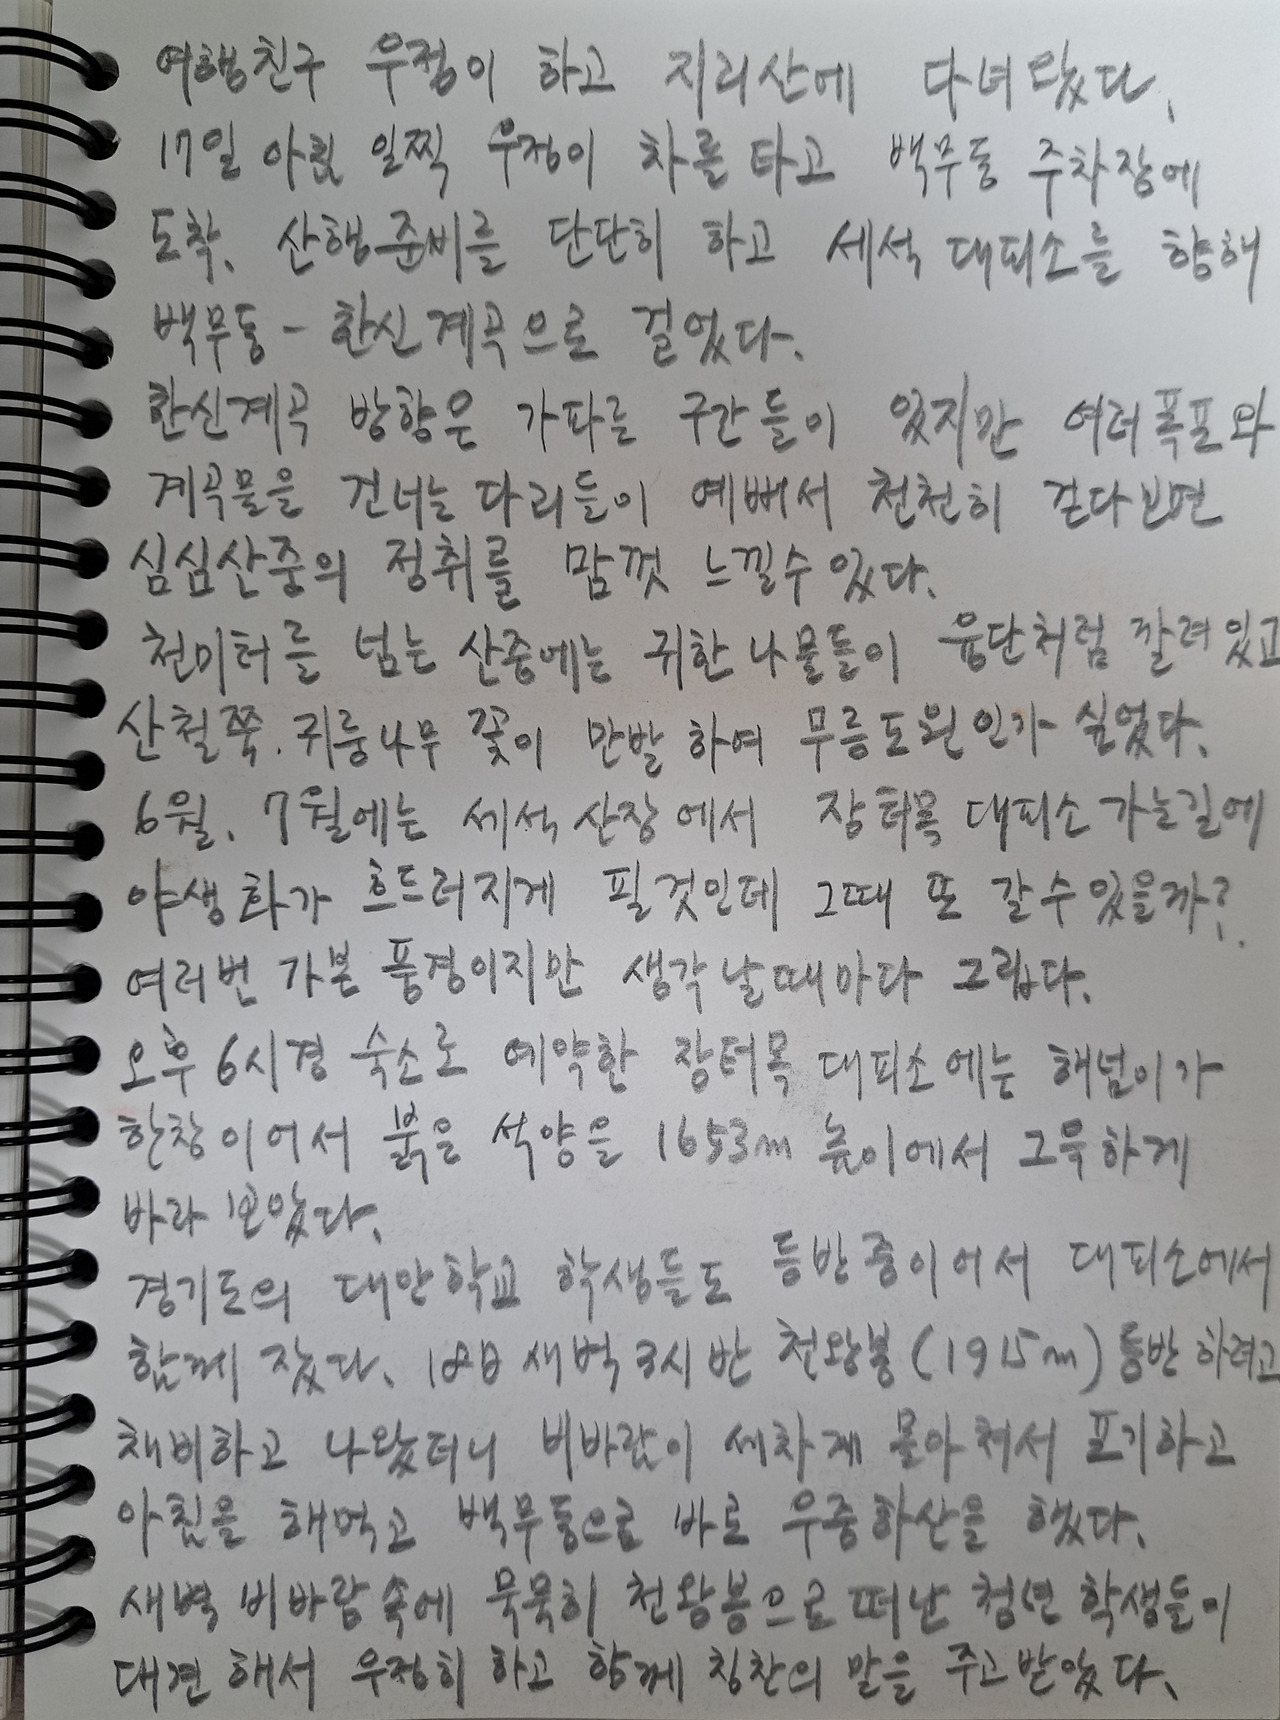 여행친구 우정이 하고 지리산에 다녀왔다.
17일 아침 일찍 우정이 차를 타고 백무동 주차장에
도착. 산행준비를 단단히 하고 세석 대피소를 향해
백무동 - 한신계곡으로 걸었다.
한신계곡 방향은 가파른 구간들이 있지만 여러폭포와
계곡물을 건너는 다리들이 예뻐서 천천히 걷다보면
심심산중의 정취를 맘껏 느낄수있다.
천미터를 넘는 산중에는 귀한나물들이 융단처럼 깔려있고
산철쭉. 귀룽나무 꽃이 만발하여 무릉도원인가 싶었다.
6월. 7월에는 세석산장에서 장터목 대피소가는길에
야생화가 흐드러지게 필것인데 그때 또 갈수있을까?
여러번 가본 풍경이지만 생각날때마다 그립다.
오후 6시경 숙소로 예약한 장터목 대피소에는 해넘이가
한창이어서 붉은 석양을 1653m 높이에서 그윽하게
바라 보았다.
경기도의 대안학교 학생들도 등반중이어서 대피소에서
함께 잤다. 18일 새벽 3시반 천왕봉(1915m)등반하려고
채비하고 나왔더니 비바람이 세차게 몰아쳐서 포기하고
아침을 해먹고 백무동으로 바로 우중하산을 했다.
새벽 비바람속에 묵묵히 천왕봉으로 떠난 청년 학생들이
대견해서 우정히 하고 함께 칭찬의 말을 주고받았다.